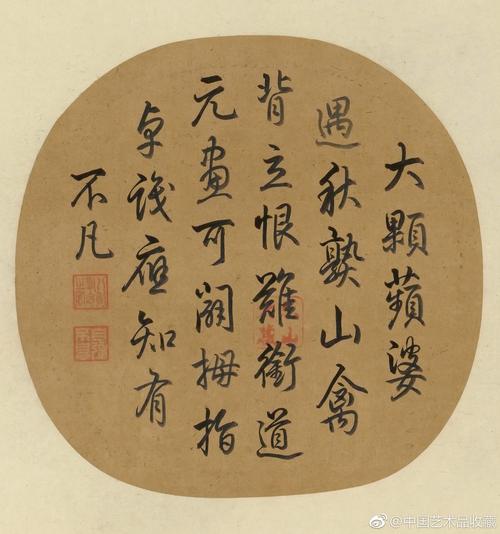 大顆蘋婆
遇秋熟山禽
背立恨難銜道
元畫可闢拇指
卓識應知有
不凡
@中国艺术品收藏